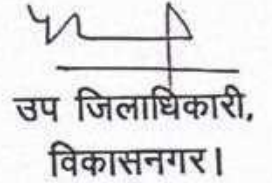 उप जिलाधिकारी,
विकासनगर।